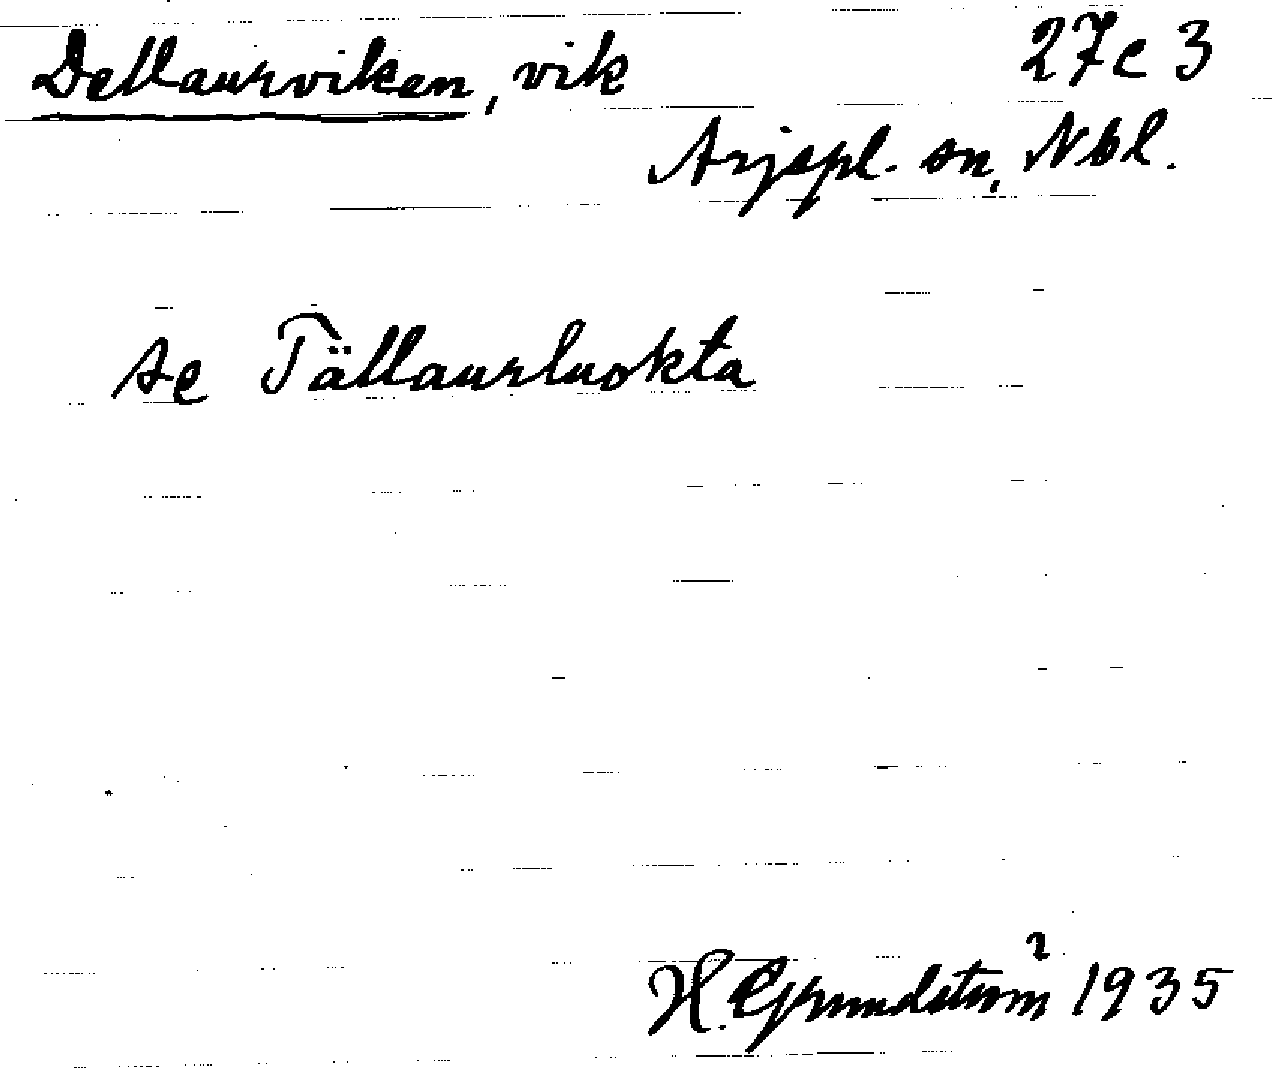 Dellaurviken, vik 27c 3
Arjspl. sn, Nbl.
se Tällaurluokta
H. Grundström 1935